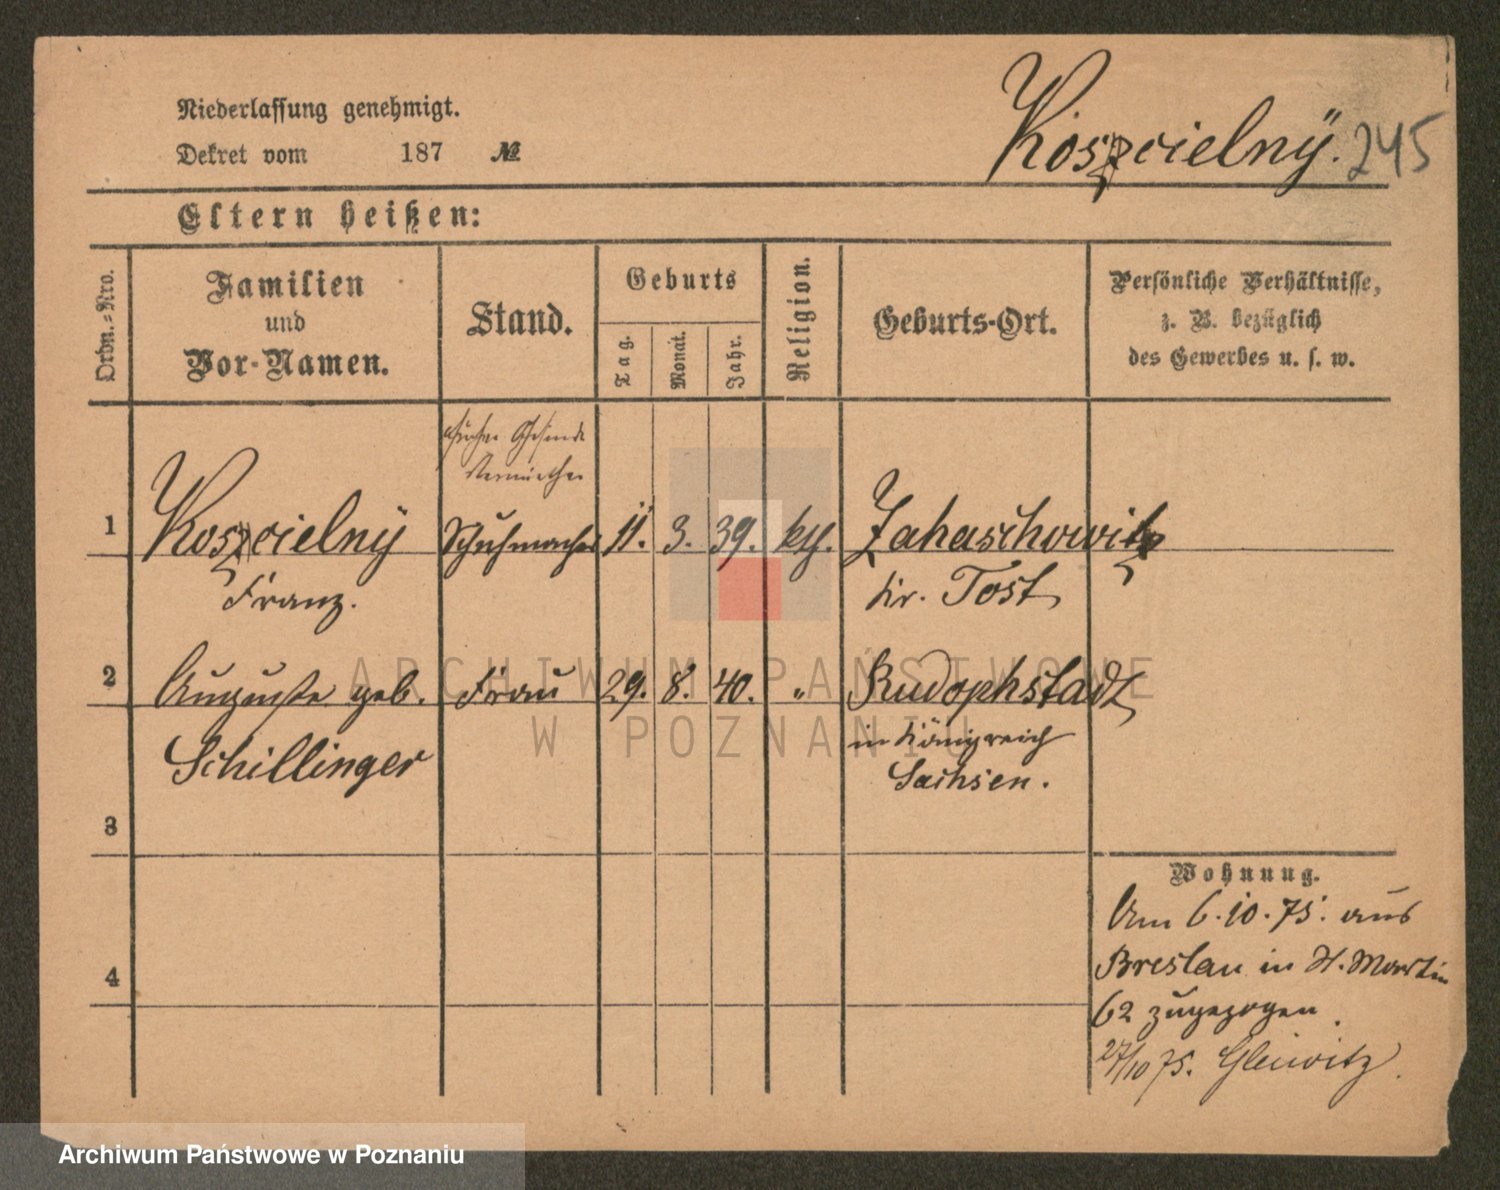 Niederlassung genehmigt.
Dekret vom 187 №
Koszcielnÿ. 245
Eltern heißen:
Ordn.-Nro.
Familien
und
Vor-Namen.
Stand.
Geburts
Tag.
Monat.
Jahr.
Religion.
Geburts-Ort.
Persönliche Verhältnisse,
z. B. bezüglich
des Gewerbes u. s. w.
früher Gesinde
Vermiether
1 Koszcielnÿ Schuhmacher 11. 3. 39. kth. Zahaschowitz
Franz. Kr. Tost
2 Auguste geb. Frau 29. 8. 40. " Rudophstadt
Schillinger in Königreich
Sachsen.
3
4
Wohnung.
Am 6.10.75. aus
Breslau in St. Martin
62 zugezogen.
27/10 75. Gleiwitz.
ARCHIWUM PAŃSTWOWE
W POZNANIU
Archiwum Państwowe w Poznaniu